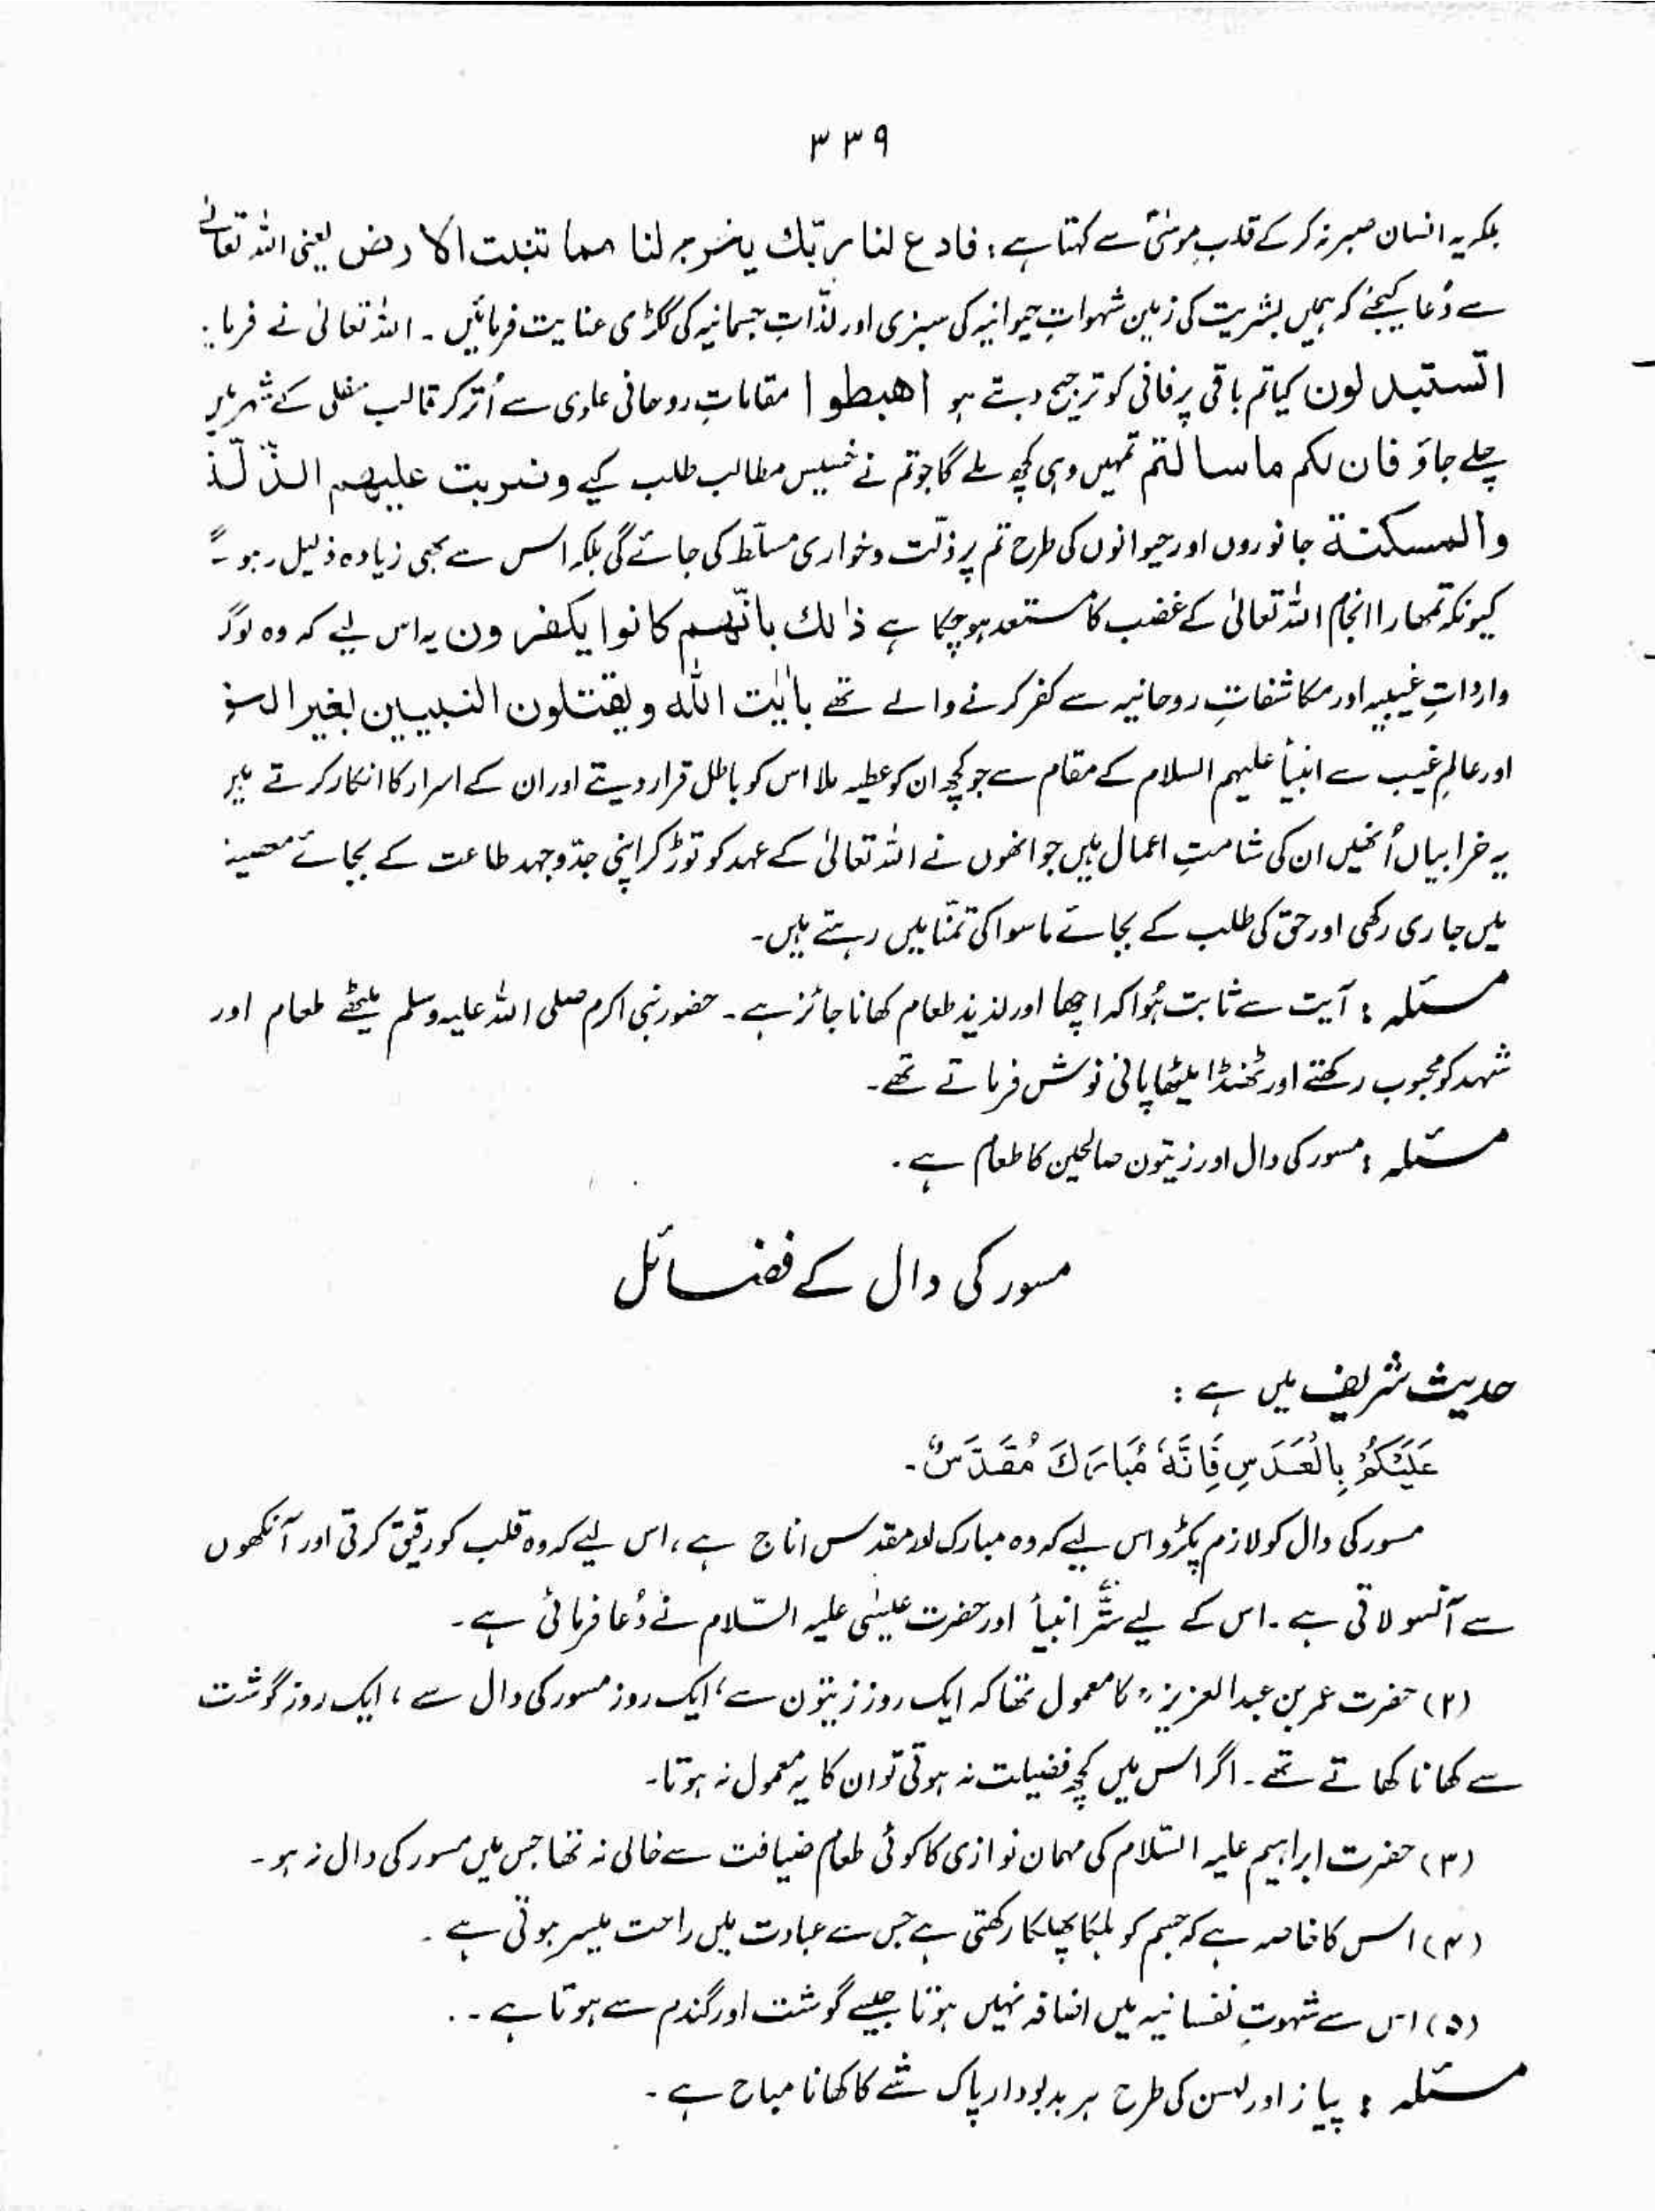 ۳۳۹
بلکہ یہ انسان صبر نہ کر کے قلبِ موسٰیؑ سے کہتا ہے : فادع لنا ربّك يخرج لنا مما تنبت الارض یعنی اللہ تعالیٰ
سے دُعا کیجئے کہ ہمیں بشریت کی زمین شہواتِ حیوانیہ کی سبزی اور لذّاتِ جسمانیہ کی ککڑی عنایت فرمائیں ۔ اللہ تعالیٰ نے فرمایا :
اتستبدلون کیا تم باقی پر فانی کو ترجیح دیتے ہو اهبطوا مقاماتِ روحانی علوی سے اُتر کر قالب سفلی کے شہر میں
چلے جاؤ فان لكم ما سالتم تمہیں وہی کچھ ملے گا جو تم نے خسیس مطالب طلب کیے وضربت عليهم الذّلّة
والمسكنة جانوروں اور حیوانوں کی طرح تم پر ذلّت و خواری مسلّط کی جائے گی بلکہ اس سے بھی زیادہ ذلیل ہو گے
کیونکہ تمھارا انجام اللہ تعالیٰ کے غضب کا مستعد ہو چکا ہے ذٰلك بانّهم كانوا يكفرون یہ اس لیے کہ وہ لوگ
وارداتِ غیبیہ اور مکاشفاتِ روحانیہ سے کفر کرنے والے تھے بايٰت الله ويقتلون النبيين بغير الحق
اور عالمِ غیب سے انبیأ علیہم السلام کے مقام سے جو کچھ ان کو عطیہ ملا اس کو باطل قرار دیتے اور ان کے اسرار کا انکار کرتے ہیں
یہ خرابیاں اُنھیں ان کی شامتِ اعمال ہیں جو انھوں نے اللہ تعالیٰ کے عہد کو توڑ کر اپنی جدّ و جہد طاعت کے بجائے معصیت
میں جاری رکھی اور حق کی طلب کے بجائے ماسوا کی تمنّا میں رہتے ہیں۔
مسئلہ : آیت سے ثابت ہُوا کہ اچھا اور لذیذ طعام کھانا جائز ہے ۔ حضور نبی اکرم صلی اللہ علیہ وسلم میٹھے طعام اور
شہد کو محبوب رکھتے اور ٹھنڈا میٹھا پانی نوش فرماتے تھے۔
مسئلہ : مسور کی دال اور زیتون صالحین کا طعام ہے ۔
مسور کی دال کے فضائل
حدیث شریف میں ہے :
عَلَيْكُمْ بِالْعَدَسِ فَاِنَّهٗ مُبَارَكٌ مُقَدَّسٌ ۔
مسور کی دال کو لازم پکڑو اس لیے کہ وہ مبارک اور مقدس اناج ہے ، اس لیے کہ وہ قلب کو رقیق کرتی اور آنکھوں
سے آنسو لاتی ہے ۔ اس کے لیے ستّر انبیأ اور حضرت عیسٰی علیہ السّلام نے دُعا فرمائی ہے ۔
(۲) حضرت عمر بن عبد العزیزؓ کا معمول تھا کہ ایک روز زیتون سے ، ایک روز مسور کی دال سے ، ایک روز گوشت
سے کھانا کھاتے تھے ۔ اگر اس میں کچھ فضیلت نہ ہوتی تو ان کا یہ معمول نہ ہوتا۔
(۳) حضرت ابراہیم علیہ السّلام کی مہمان نوازی کا کوئی طعام ضیافت سے خالی نہ تھا جس میں مسور کی دال نہ ہو ۔
(۴) اس کا خاصہ ہے کہ جسم کو ہلکا پھلکا رکھتی ہے جس سے عبادت میں راحت میسر ہوتی ہے ۔
(۵) اس سے شہوتِ نفسانیہ میں اضافہ نہیں ہوتا جیسے گوشت اور گندم سے ہوتا ہے ۔
مسئلہ : پیاز اور لہسن کی طرح ہر بدبودار پاک شے کا کھانا مباح ہے ۔